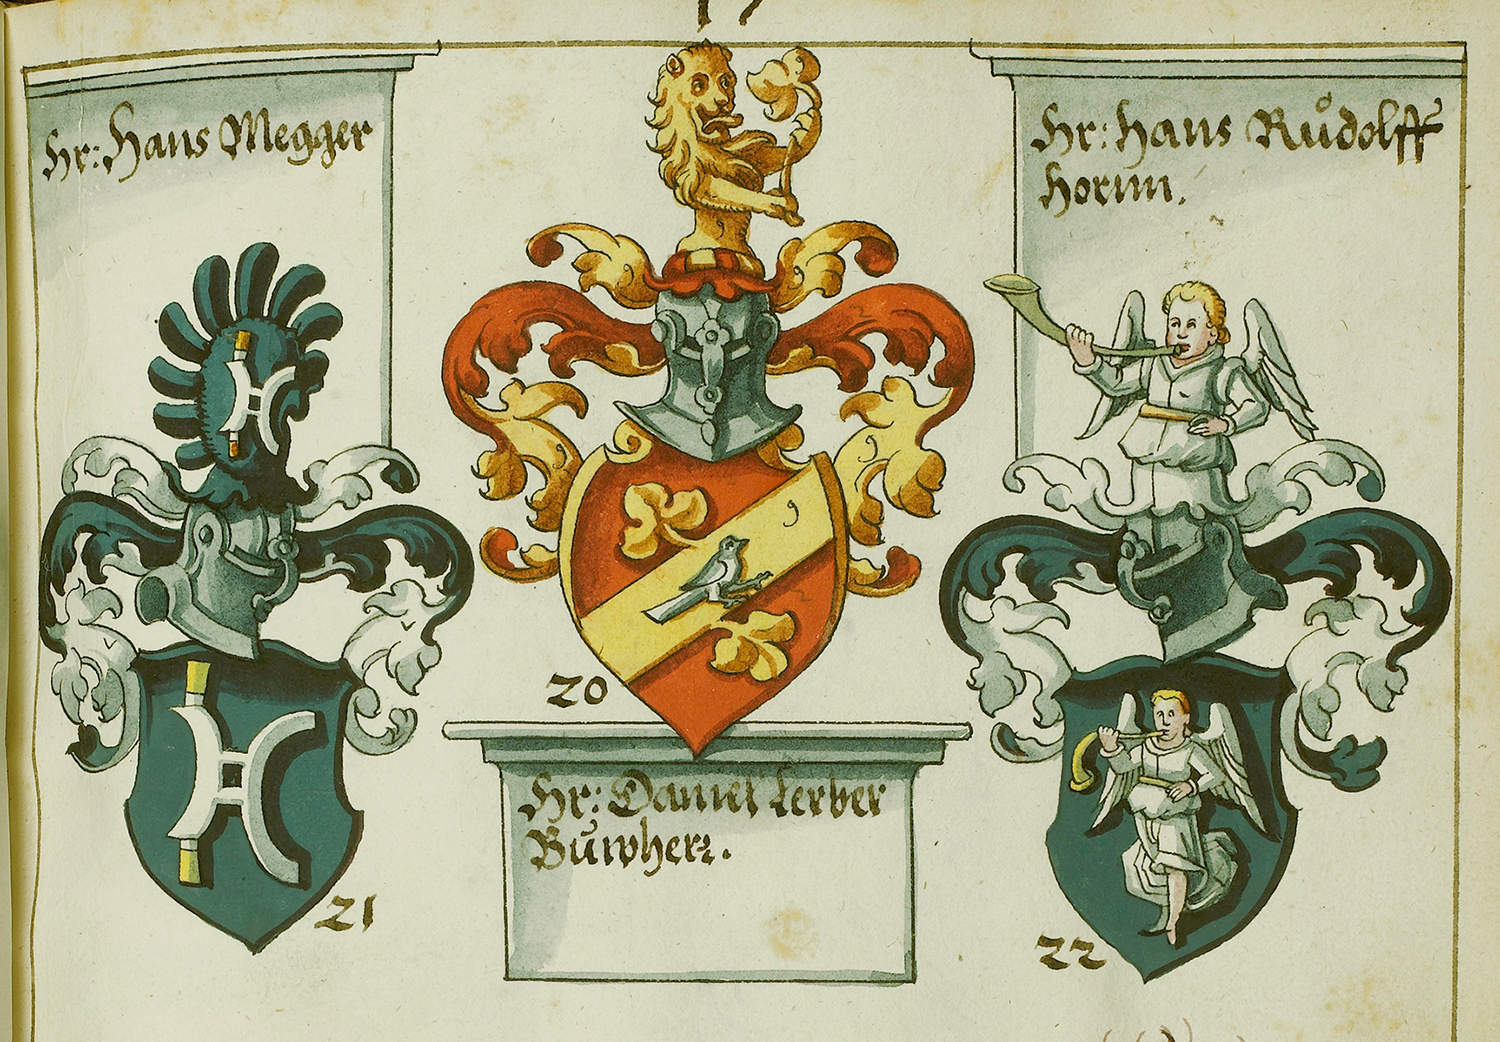 Hr: Hans Megger
Hr: Hans Růdolff
Hornn.
20
Hr: Daniel Lerber
Buwherr.
21
22